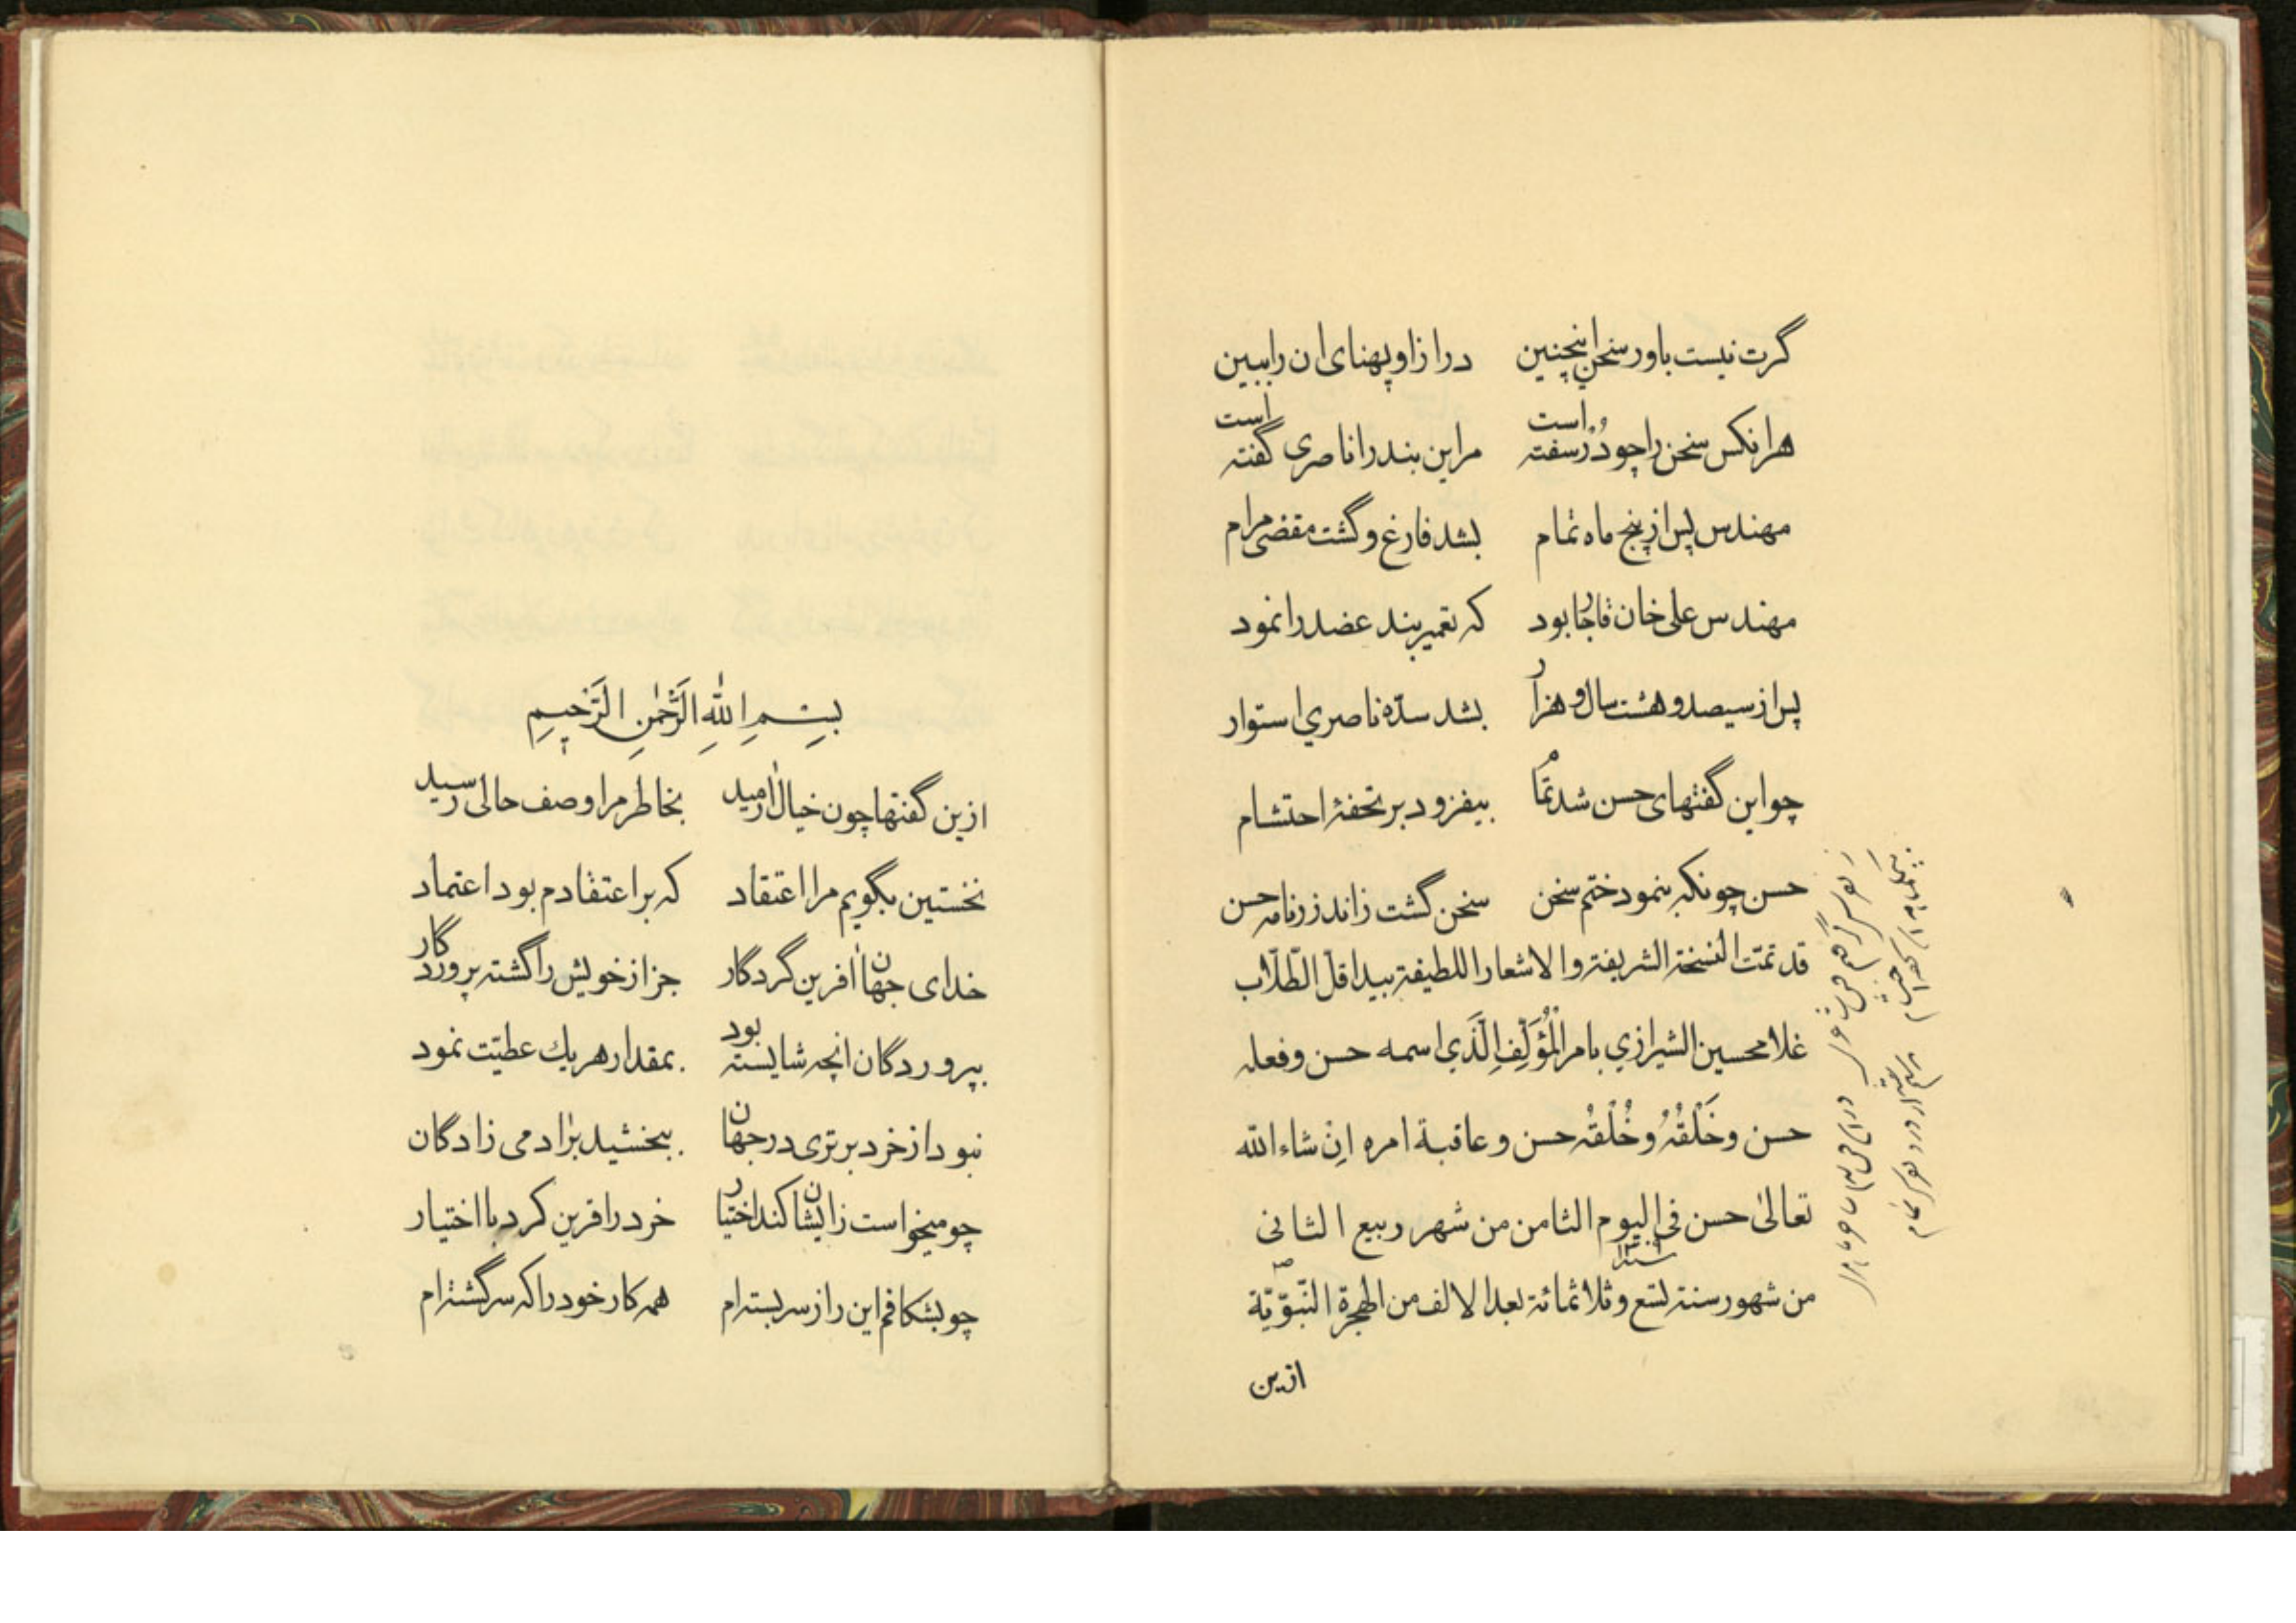 گرت نیست باور سخن اینچنین درازا و پهنای ان را ببین
هرانکس سخن را چو دُرّ سفته است مراین بند را ناصری گفته است
مهندس پس از پنج ماه تمام بشد فارغ و گشت مقضی مرام
مهندس علی خان قاجار بود که تعمیر بند عضد را نمود
پس از سیصد و هشت سال و هزار بشد سدّه ناصری استوار
چو این گفتهای حسن شد تمام بیفزود بر تحفهٔ احتشام
حسن چونکه بنمود ختم سخن سخن گشت زاندرزنامه حسن
قد تمّت النسخة الشریفة والاشعار اللطیفة بید اقلّ الطّلّاب
غلامحسین الشیرازی بامر الْمُؤَلِّفِ الَّذی اسمه حسن وفعله
حسن وخَلْقُهُ وخُلْقُه حسن وعاقبة امره اِنْ شاء الله
تعالیٰ حسن فی الیوم الثامن من شهر ربیع الثانی
من شهور سنة تسع وثلاثمائة بعد الالف من الهجرة النّبوّیّة
ازین
بِسْمِ اللّٰهِ الرَّحْمٰنِ الرَّحیمِ
ازین گفتها چون خیال ارمید بخاطر مرا وصف حالی رسید
نخستین بگویم مرا اعتقاد که بر اعتقادم بود اعتماد
خدای جهان افرین گردگار جز از خویش را گشته پروردگار
بپروردگان انچه شایسته بود بمقدار هریك عطیّت نمود
نبود از خرد برتری در جهان ببخشید بر ادمی زادگان
چو میخواست زایشان کند اختیار خرد را فرین کرد با اختیار
چو بشکافم این راز سربسته ام همه کار خود را که سرگشته ام